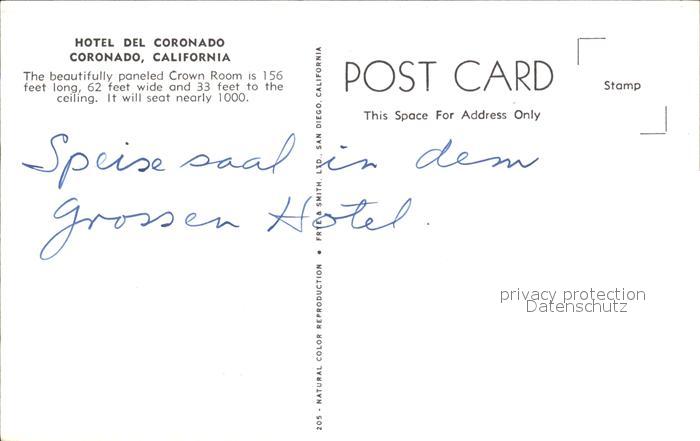 HOTEL DEL CORONADO
CORONADO, CALIFORNIA
The beautifully paneled Crown Room is 156
feet long, 62 feet wide and 33 feet to the
ceiling. It will seat nearly 1000.
POST CARD
This Space For Address Only
Stamp
205 - NATURAL COLOR REPRODUCTION • FRYE & SMITH, LTD. SAN DIEGO, CALIFORNIA
Speise saal in dem
Grossen Hotel.
privacy protection
Datenschutz